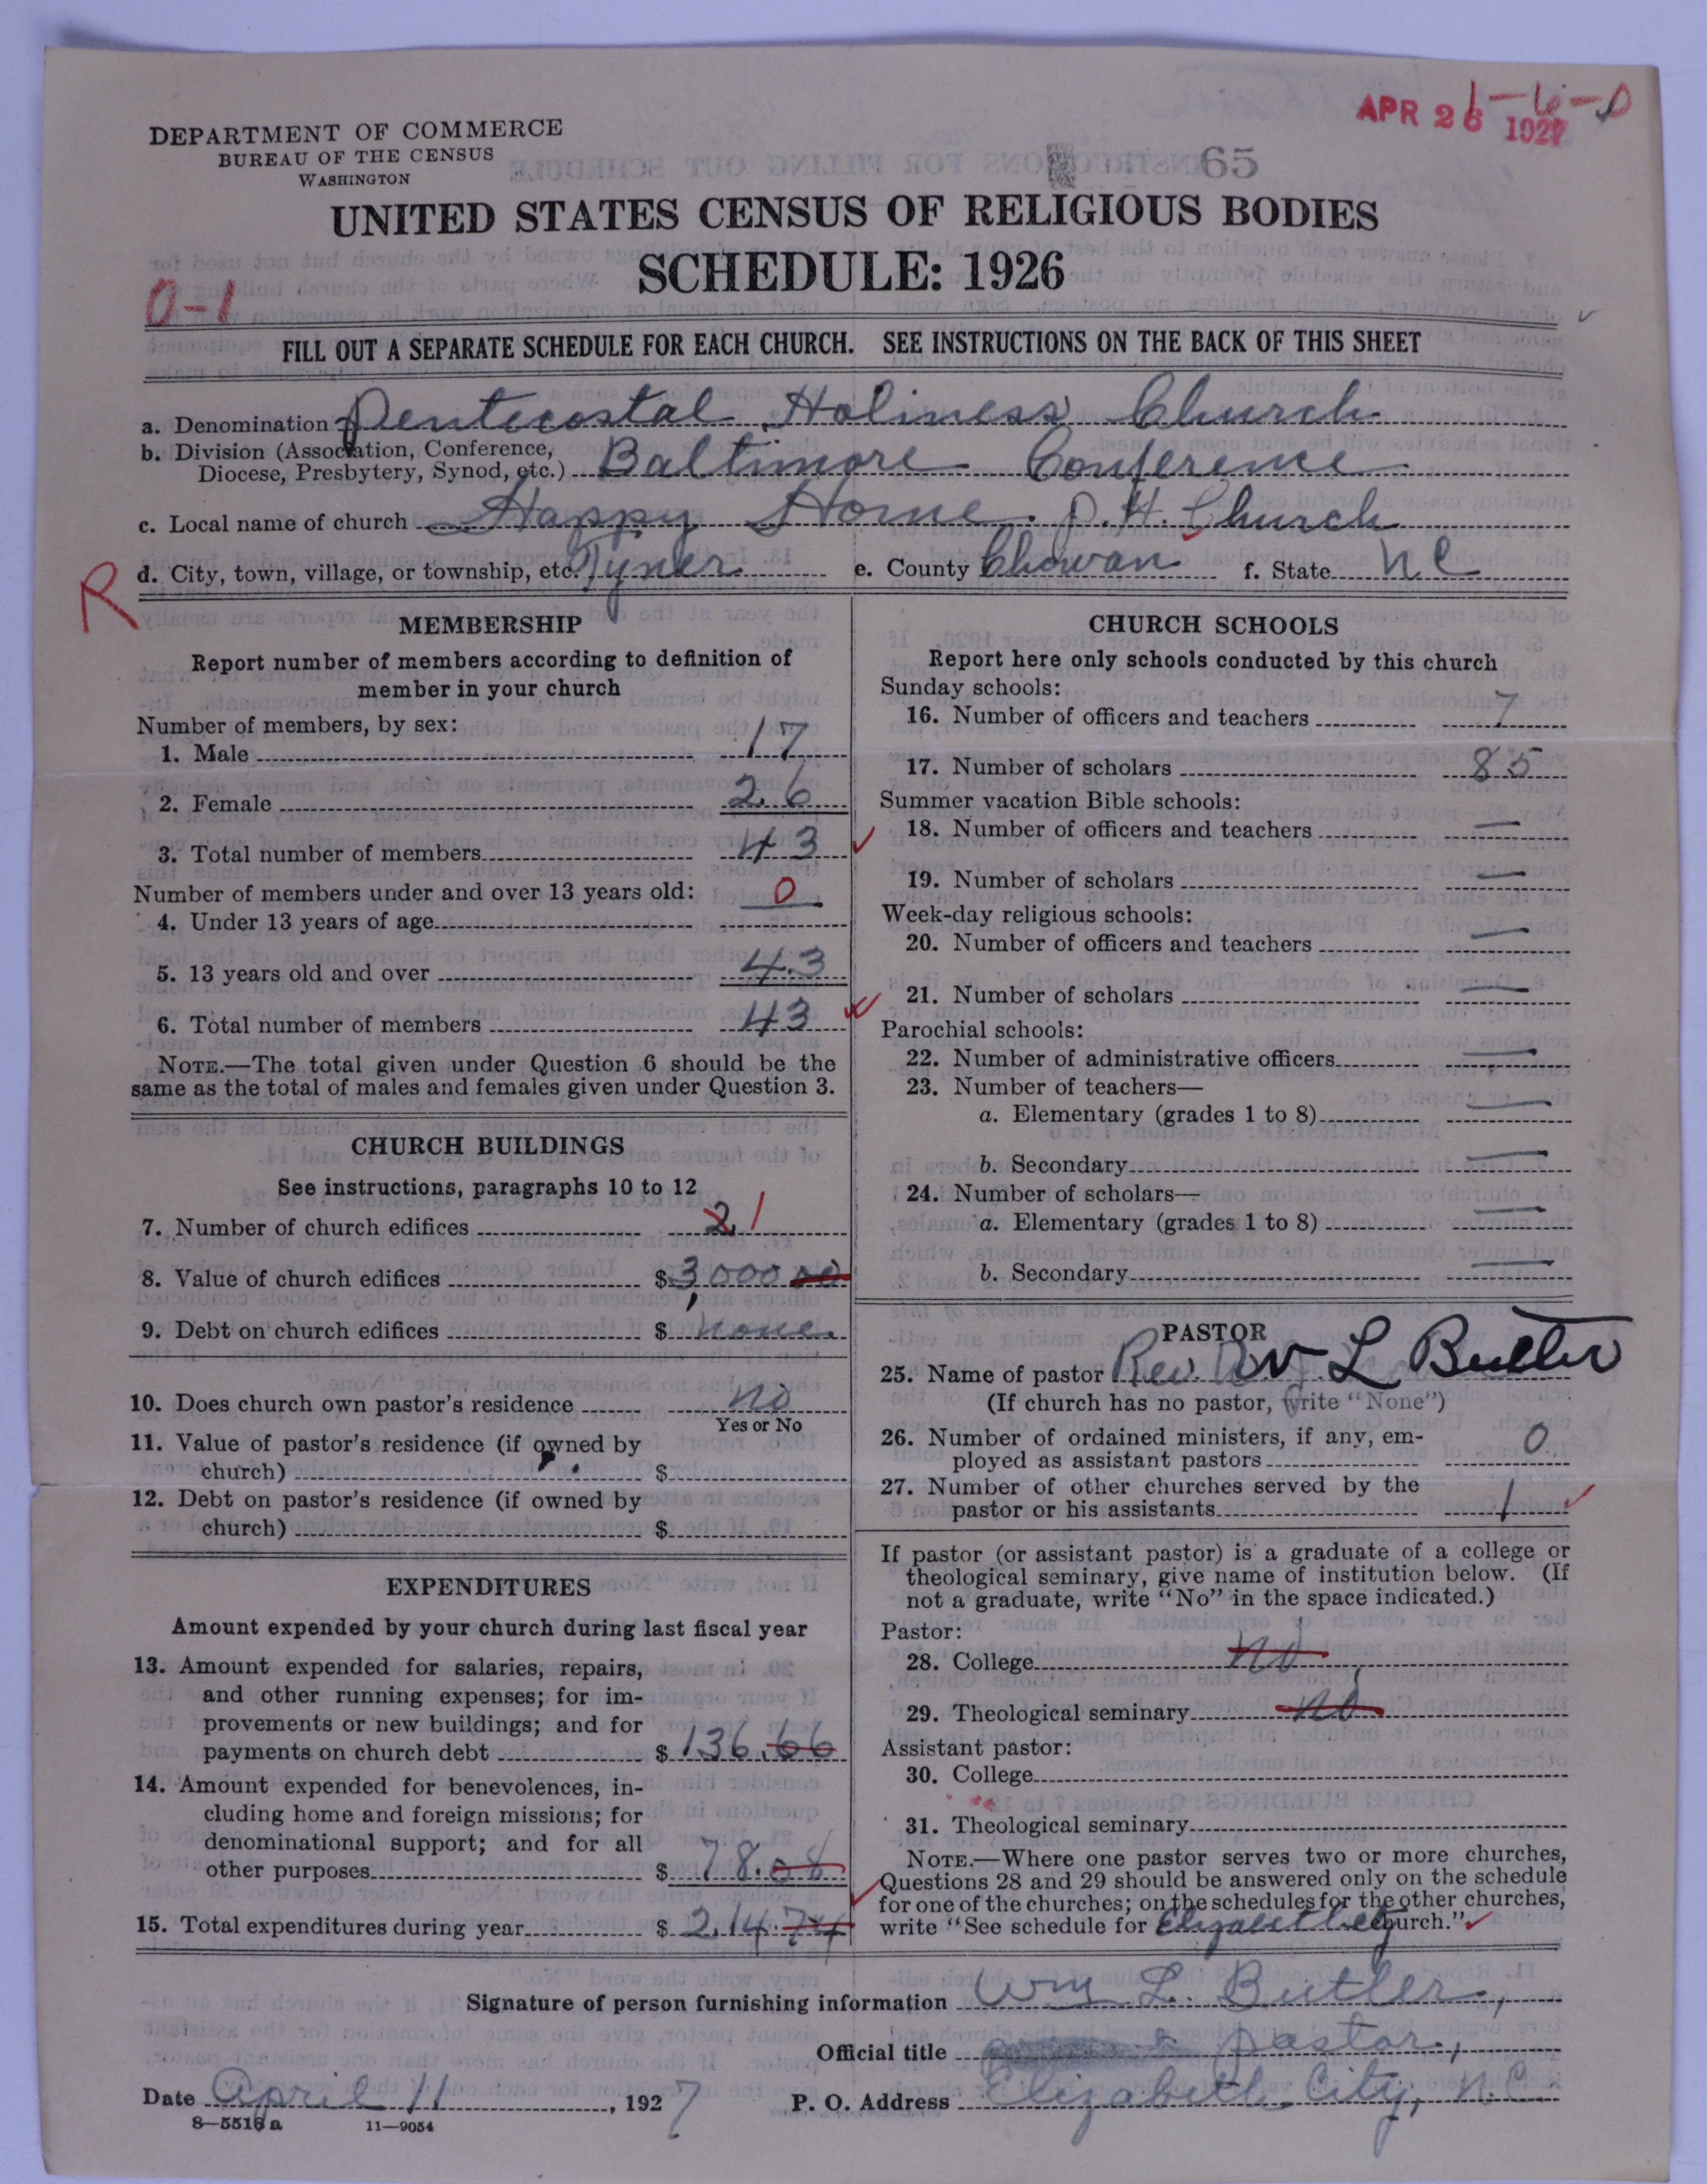 APR 26 1927
1-6-0
DEPARTMENT OF COMMERCE
BUREAU OF THE CENSUS
WASHINGTON
65
UNITED STATES CENSUS OF RELIGIOUS BODIES
SCHEDULE: 1926
0-1
FILL OUT A SEPARATE SCHEDULE FOR EACH CHURCH. SEE INSTRUCTIONS ON THE BACK OF THIS SHEET
a. Denomination Pentecostal Holiness Church
b. Division (Association, Conference,
Diocese, Presbytery, Synod, etc.) Baltimore Conference
c. Local name of church Happy Home. P.H. Church
d. City, town, village, or township, etc. Tyner e. County Chowan f. State N C
R
MEMBERSHIP
Report number of members according to definition of
member in your church
Number of members, by sex:
1. Male 17
2. Female 26
3. Total number of members 43
Number of members under and over 13 years old: 0
4. Under 13 years of age
5. 13 years old and over 43
6. Total number of members 43
NOTE.—The total given under Question 6 should be the
same as the total of males and females given under Question 3.
CHURCH BUILDINGS
See instructions, paragraphs 10 to 12
7. Number of church edifices 2 1
8. Value of church edifices $ 3,000 00
9. Debt on church edifices $ None.
10. Does church own pastor's residence No
Yes or No
11. Value of pastor's residence (if owned by
church) $
12. Debt on pastor's residence (if owned by
church) $
EXPENDITURES
Amount expended by your church during last fiscal year
13. Amount expended for salaries, repairs,
and other running expenses; for im-
provements or new buildings; and for
payments on church debt $ 136.66
14. Amount expended for benevolences, in-
cluding home and foreign missions; for
denominational support; and for all
other purposes $ 78.08
15. Total expenditures during year $ 214.74
CHURCH SCHOOLS
Report here only schools conducted by this church
Sunday schools:
16. Number of officers and teachers 7
17. Number of scholars 85
Summer vacation Bible schools:
18. Number of officers and teachers —
19. Number of scholars —
Week-day religious schools:
20. Number of officers and teachers —
21. Number of scholars —
Parochial schools:
22. Number of administrative officers —
23. Number of teachers—
a. Elementary (grades 1 to 8) —
b. Secondary —
24. Number of scholars—
a. Elementary (grades 1 to 8) —
b. Secondary —
PASTOR
25. Name of pastor Rev. W L Butler
(If church has no pastor, write "None")
26. Number of ordained ministers, if any, em-
ployed as assistant pastors 0
27. Number of other churches served by the
pastor or his assistants 1
If pastor (or assistant pastor) is a graduate of a college or
theological seminary, give name of institution below. (If
not a graduate, write "No" in the space indicated.)
Pastor:
28. College No
29. Theological seminary No
Assistant pastor:
30. College
31. Theological seminary
NOTE.—Where one pastor serves two or more churches,
Questions 28 and 29 should be answered only on the schedule
for one of the churches; on the schedules for the other churches,
write "See schedule for Elizabet City Church."
Signature of person furnishing information Wm L. Butler,
Official title pastor,
Date April 11, 1927 P. O. Address Elizabeth City, N.C.
8—5516 a 11—9054